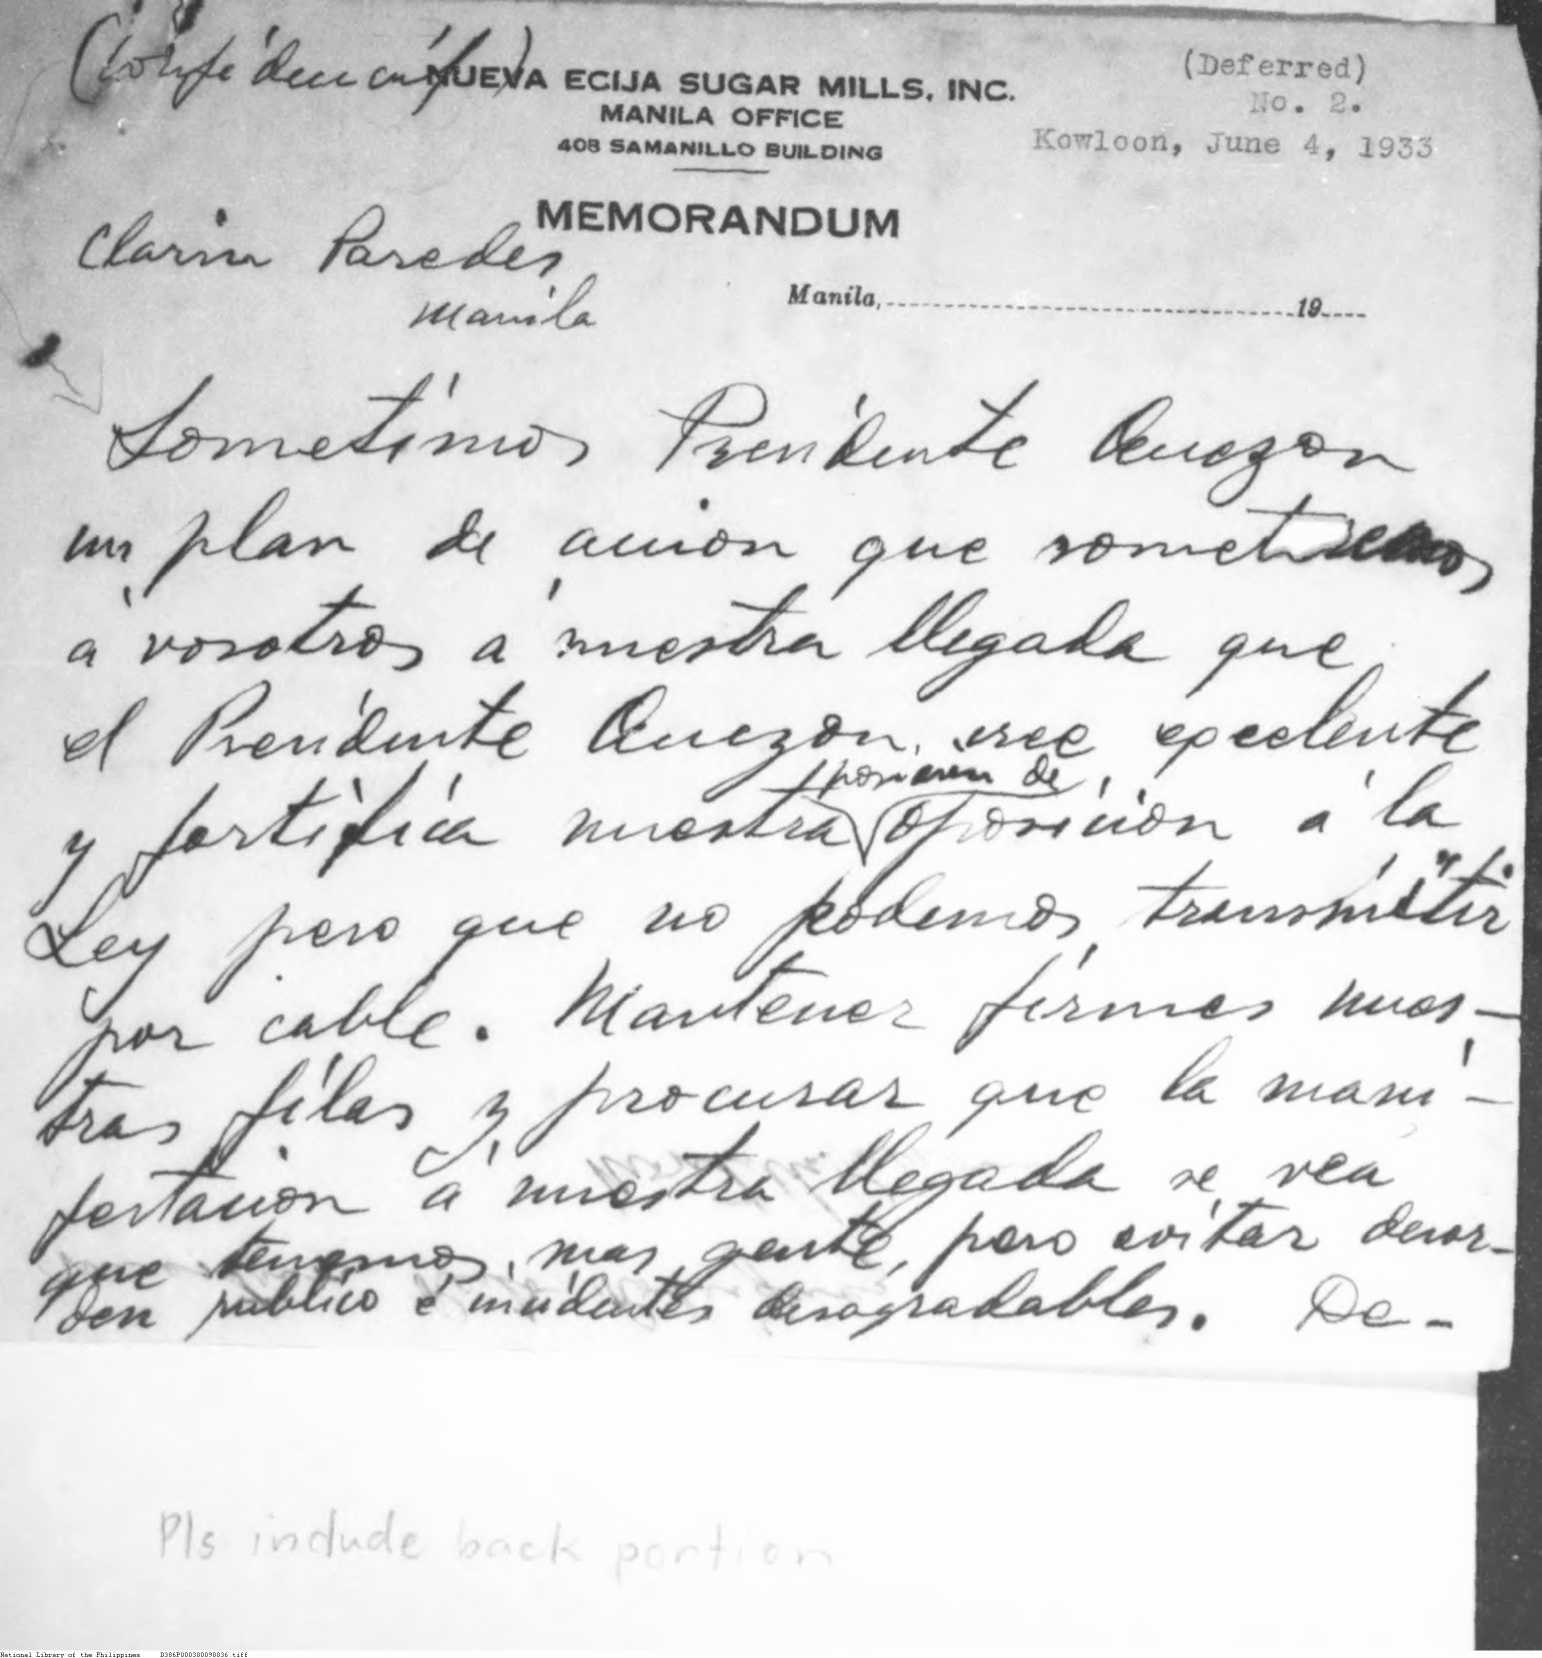 (Confidencial)
NUEVA ECIJA SUGAR MILLS, INC.
MANILA OFFICE
408 SAMANILLO BUILDING
(Deferred)
No. 2.
Kowloon, June 4, 1933
MEMORANDUM
Clarin Paredes
Manila
Manila, 19
Sometimos Presidente Quezon
un plan de accion que someteremos
á vosotros á nuestra llegada que
el Presidente Quezon cree excelente
y fortifica nuestra posicion de oposicion á la
Ley pero que no podemos transmitir
por cable. Mantener firmes nues-
tras filas y procurar que la mani-
festacion á nuestra llegada se vea
que tenemos mas gente, pero evitar desor-
den publico é incidentes desagradables. De-
Pls include back portion
National Library of the Philippines D386P000300098036.tiff